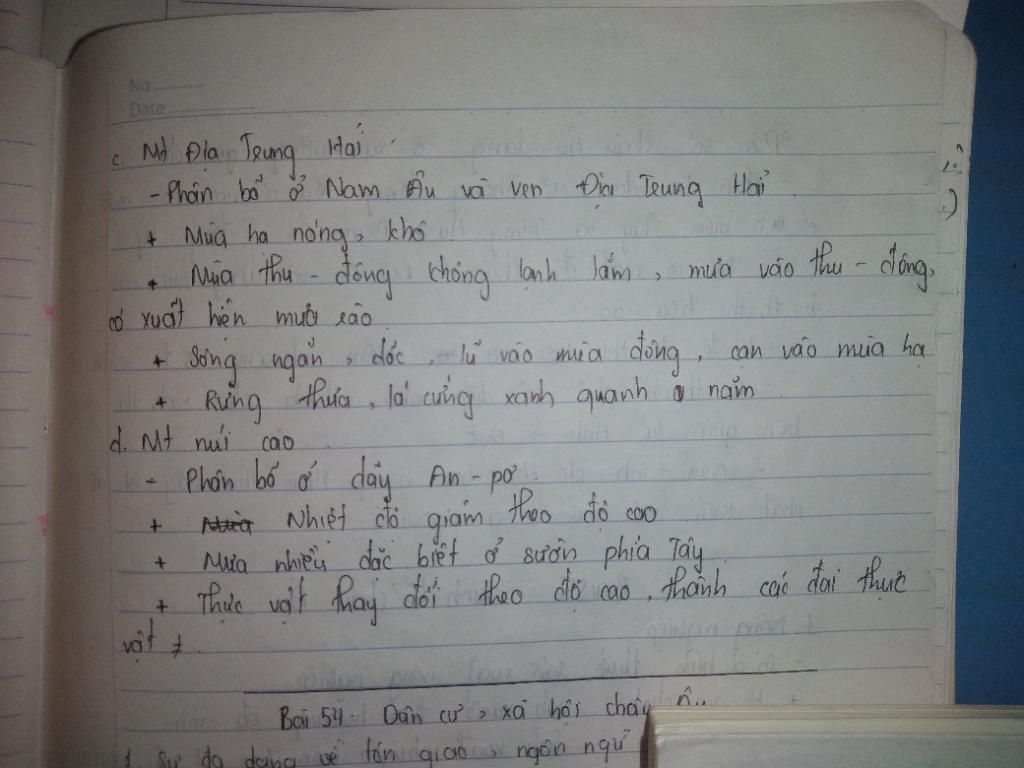 No
Date
c. Mt Địa Trung Hải
- Phân bố ở Nam Âu và ven Địa Trung Hải
+ Mùa hạ nóng, khô
+ Mùa thu - đông không lạnh lắm, mưa vào thu - đông,
có xuất hiện mưa rào
+ Sông ngắn, dốc, lũ vào mùa đông, cạn vào mùa hạ
+ Rừng thưa, lá cứng xanh quanh năm
d. Mt núi cao
- Phân bố ở dãy An-pơ
+ Nhiệt độ giảm theo độ cao
+ Mưa nhiều đặc biệt ở sườn phía Tây
+ Thực vật thay đổi theo độ cao, thành các đai thực
vật ≠.
Bài 54: Dân cư, xã hội châu Âu
1. Sự đa dạng về tôn giáo, ngôn ngữ